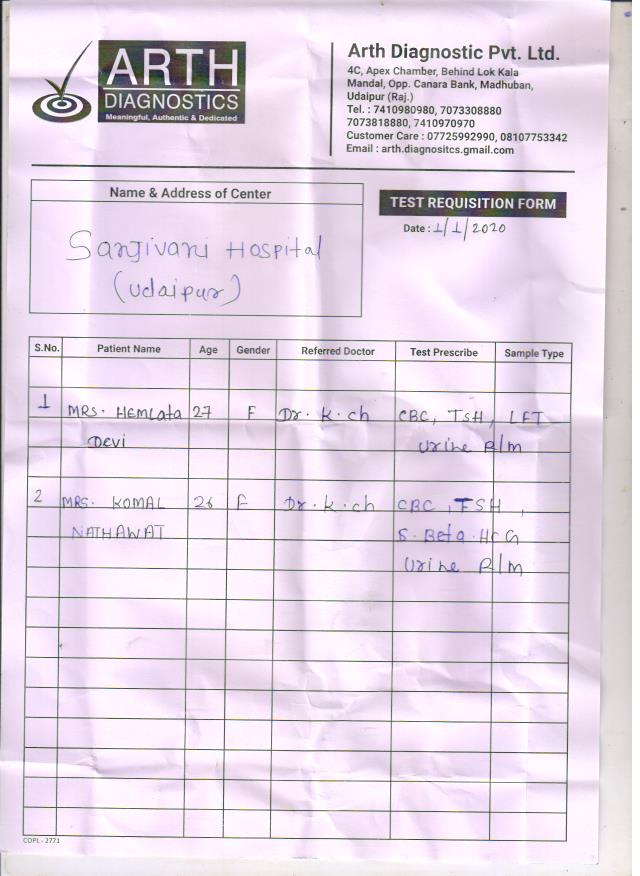 ARTH
DIAGNOSTICS
Meaningful, Authentic & Dedicated
Arth Diagnostic Pvt. Ltd.
4C, Apex Chamber, Behind Lok Kala
Mandal, Opp. Canara Bank, Madhuban,
Udaipur (Raj.)
Tel. : 7410980980, 7073308880
7073818880, 7410970970
Customer Care : 07725992990, 08107753342
Email : arth.diagnositcs.gmail.com
Name & Address of Center
Sanjivani Hospital
(Udaipur)
TEST REQUISITION FORM
Date : 1/1/2020
S.No. Patient Name Age Gender Referred Doctor Test Prescribe Sample Type
1 MRS. HEMLata 27 F Dr. K. ch CBC, TSH, LFT
Devi Urine R/m
2 MRS. KOMAL 26 F Dr. K. ch CBC, TSH,
NATHAWAT S. Beta. HCG
Urine R/m
COPL - 2771